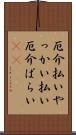 厄介払いや
っかい払い
厄介ばらい